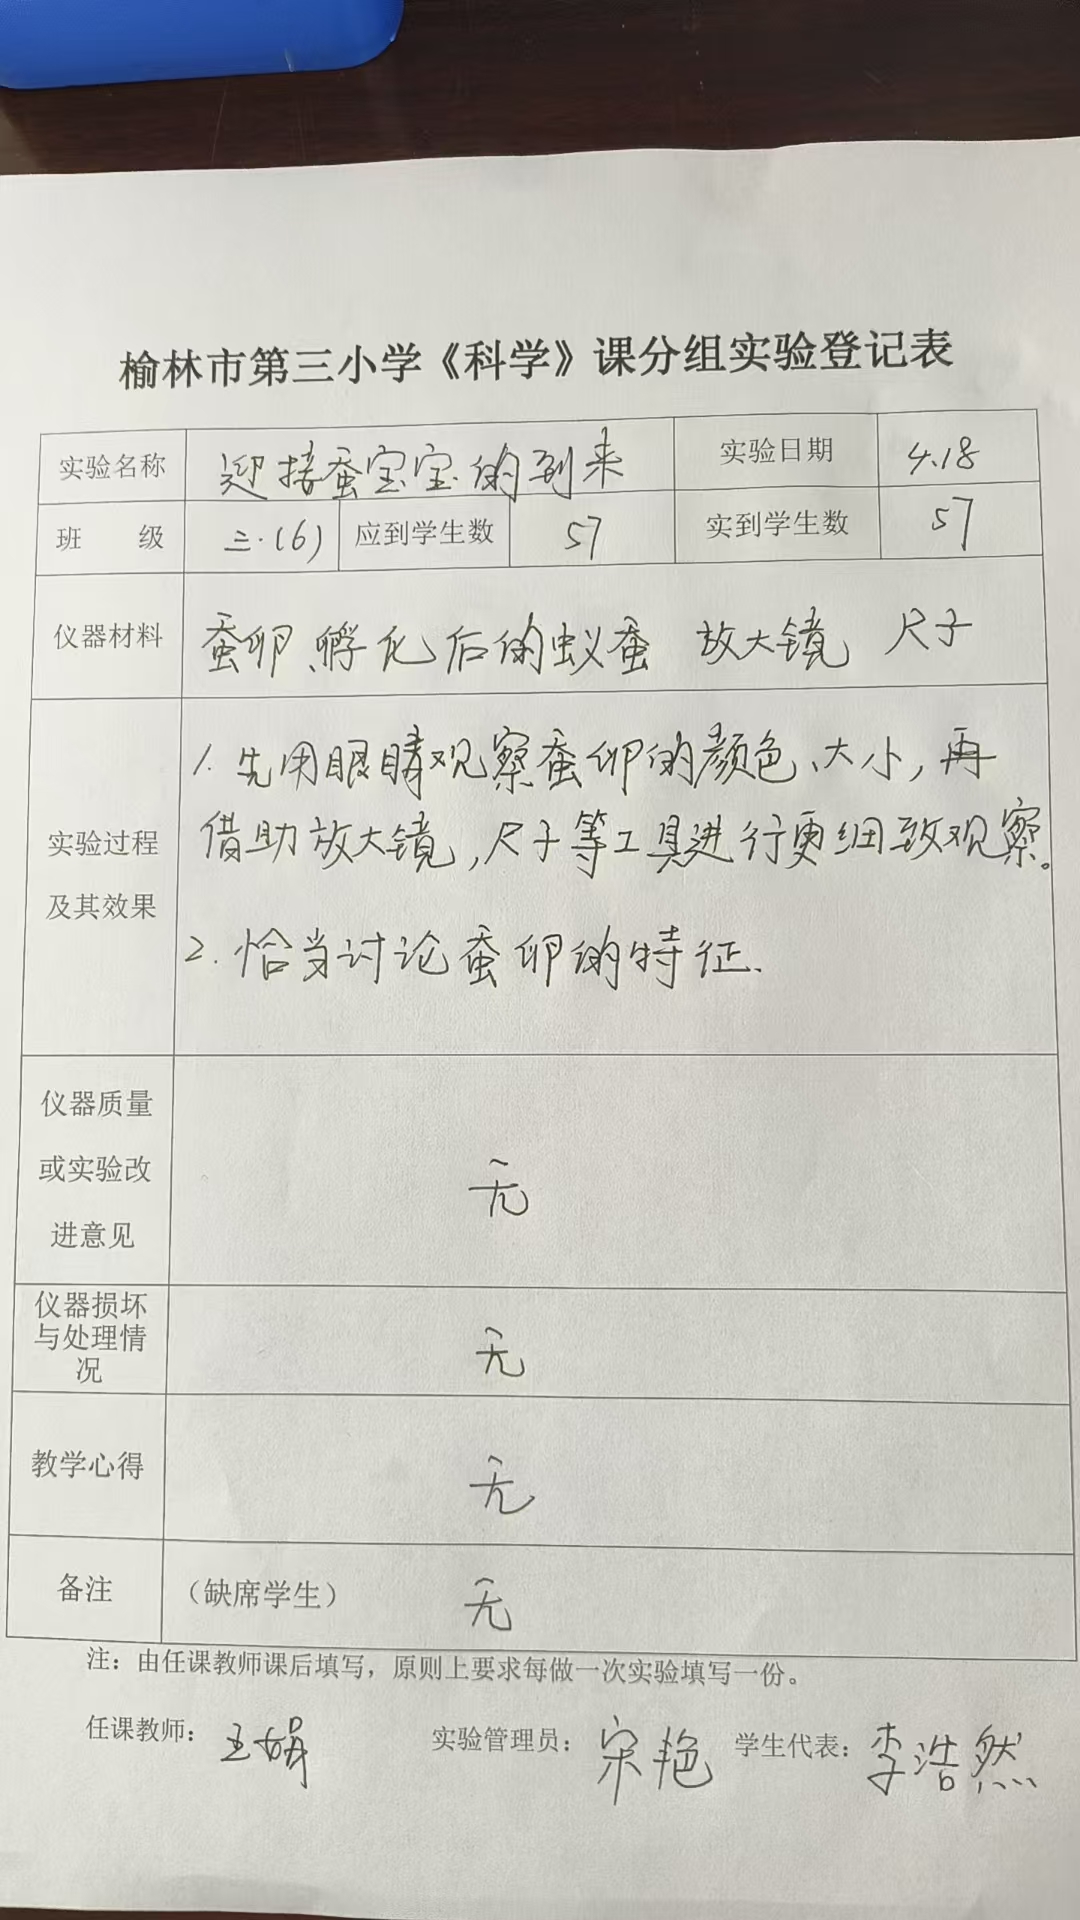 榆林市第三小学《科学》课分组实验登记表
实验名称 迎接蚕宝宝的到来 实验日期 4.18
班 级 三.(6) 应到学生数 57 实到学生数 57
仪器材料 蚕卵、孵化后的蚁蚕 放大镜 尺子
1. 先用眼睛观察蚕卵的颜色、大小，再
借助放大镜，尺子等工具进行更细致观察。
实验过程
及其效果
2. 恰当讨论蚕卵的特征、
仪器质量
或实验改
进意见
无
仪器损坏
与处理情
况
无
教学心得 无
备注 （缺席学生） 无
注：由任课教师课后填写，原则上要求每做一次实验填写一份。
任课教师：王娟 实验管理员：宋艳 学生代表：李浩然